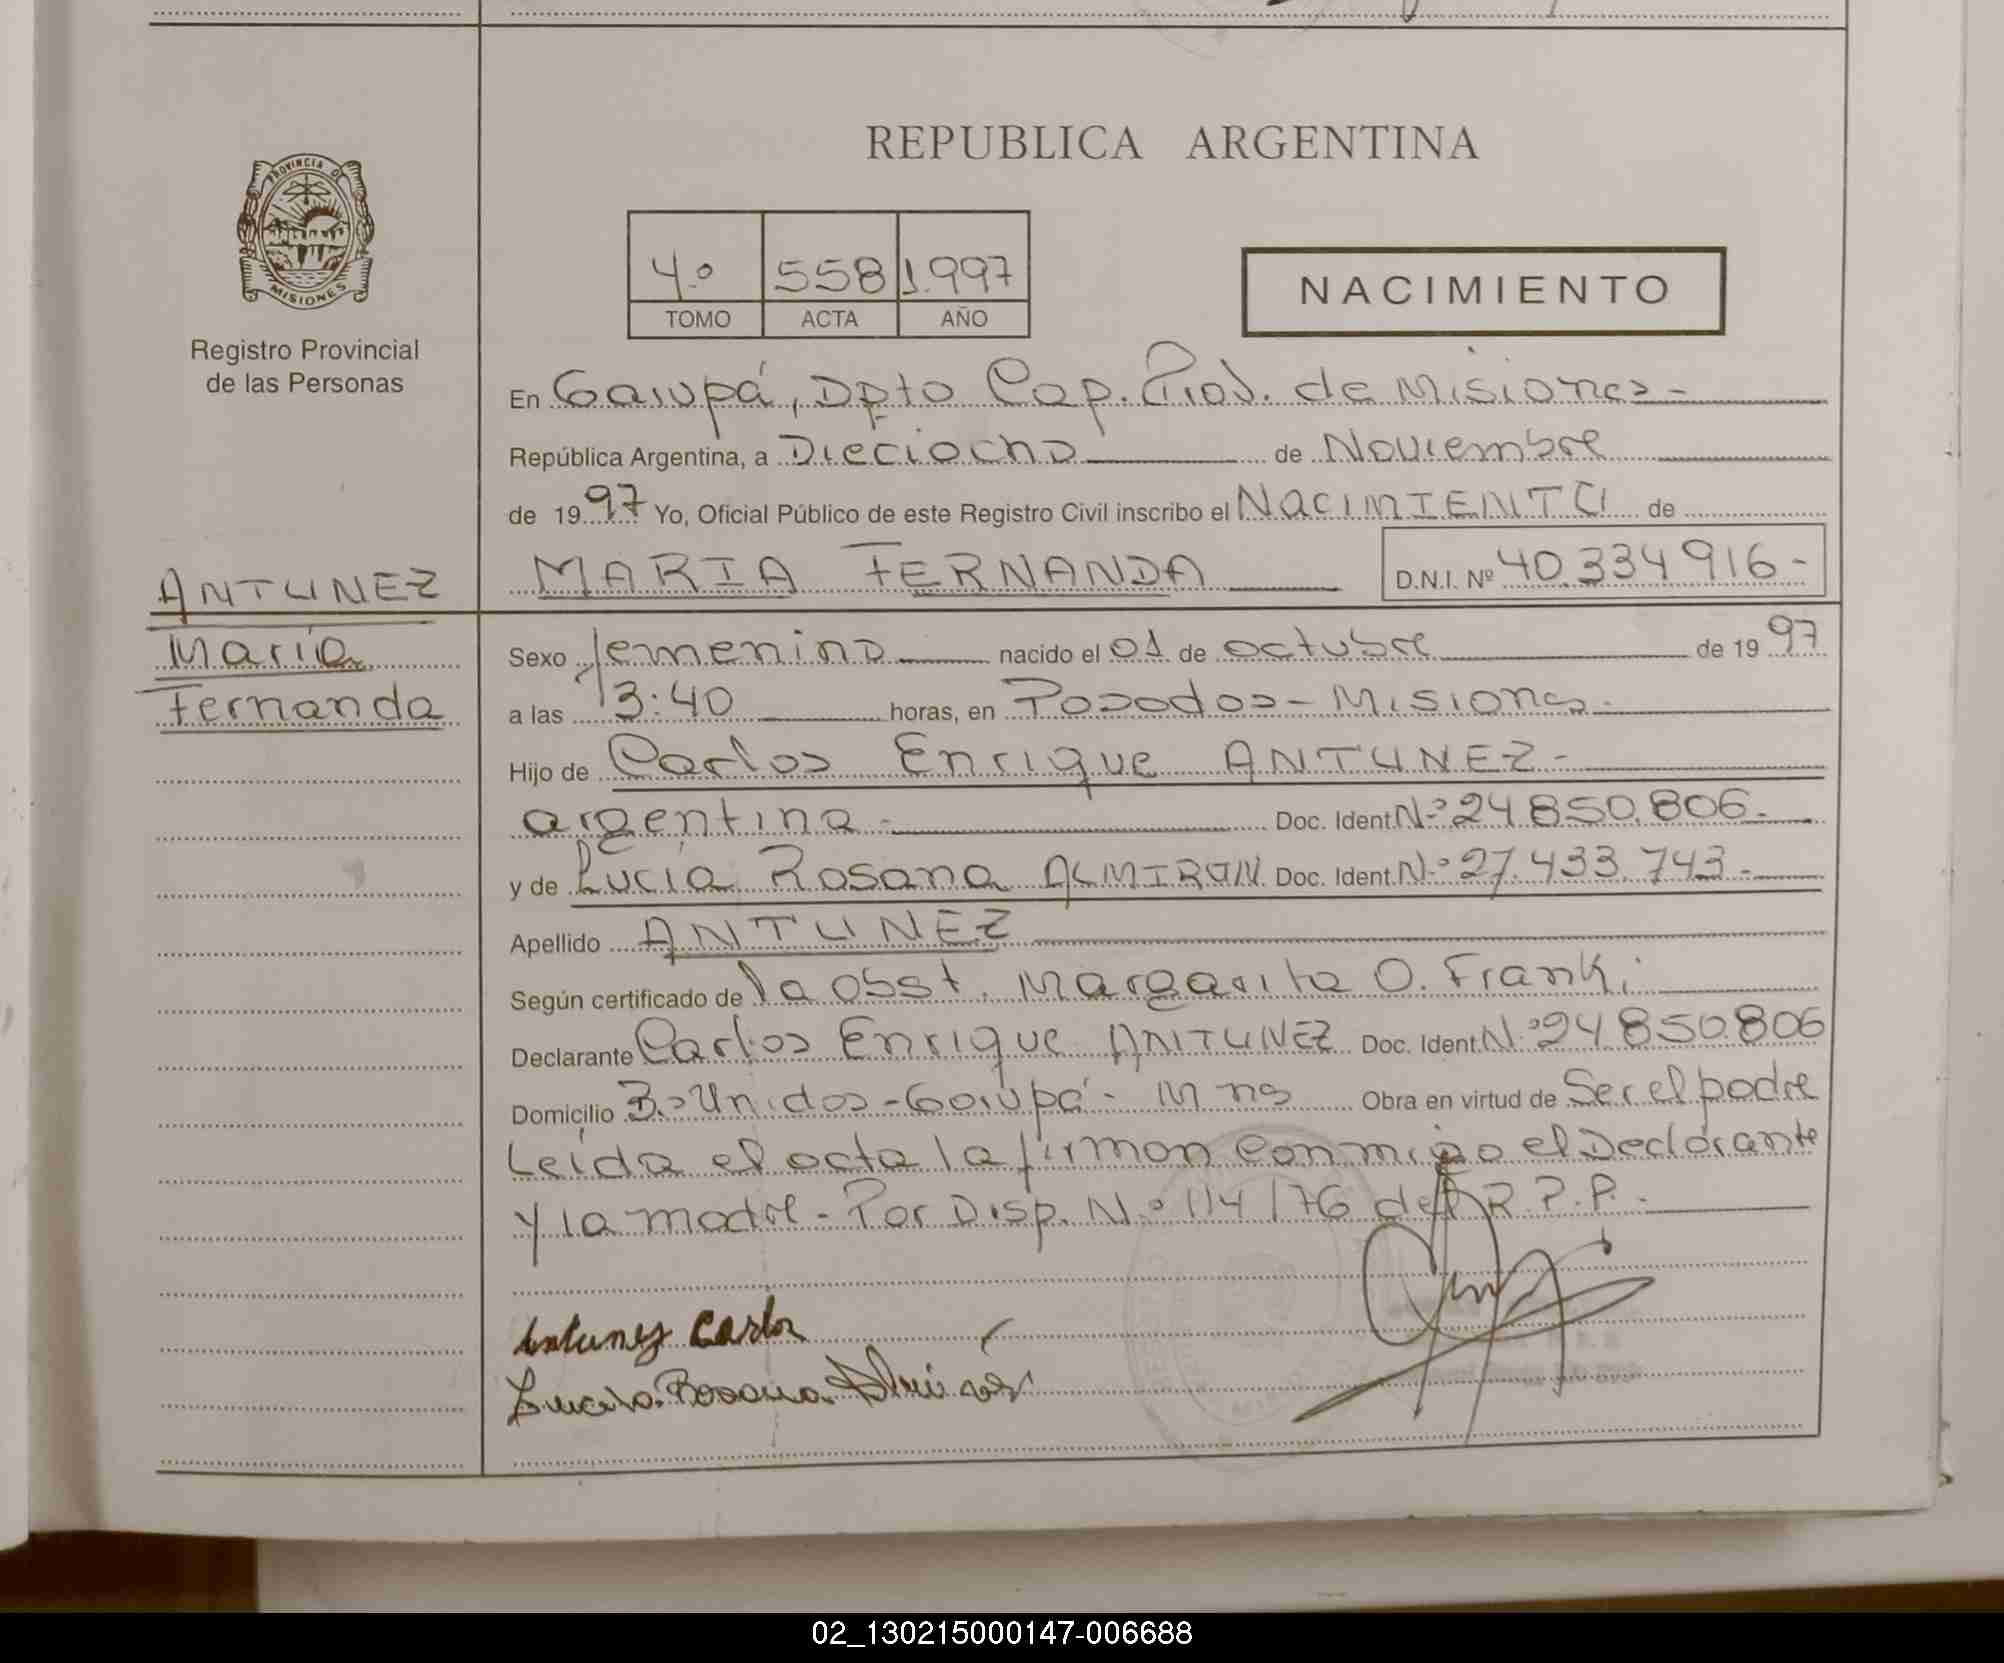 PROVINCIA DE
MISIONES
Registro Provincial
de las Personas
REPUBLICA ARGENTINA
4º 558 1.997
TOMO ACTA AÑO
NACIMIENTO
En Garupá, Dpto Cap. Prov. de Misiones -
República Argentina, a Dieciocho de Noviembre
de 1997 Yo, Oficial Público de este Registro Civil inscribo el NACIMIENTO de
MARIA FERNANDA D.N.I. Nº 40.334916-
ANTUNEZ
María
Fernanda
Sexo femenino nacido el 01 de octubre de 1997
a las 13:40 horas, en Posadas - Misiones -
Hijo de Carlos Enrique ANTUNEZ -
argentina - Doc. Ident. Nº 24.850.806 -
y de Lucía Rosana ALMIRON Doc. Ident. Nº 27.433.743 -
Apellido ANTUNEZ
Según certificado de la obst. Margarita O. Frank;
Declarante Carlos Enrique ANTUNEZ Doc. Ident. Nº 24850806
Domicilio Bº Unidos - Garupá - Mnes Obra en virtud de Ser el padre
Leída el acta la firman conmigo el Declarante
y la madre - Por Disp. Nº 114/76 del R.P.P. -
Antunez Carlos
Lucia Rosana Almirón
02_130215000147-006688